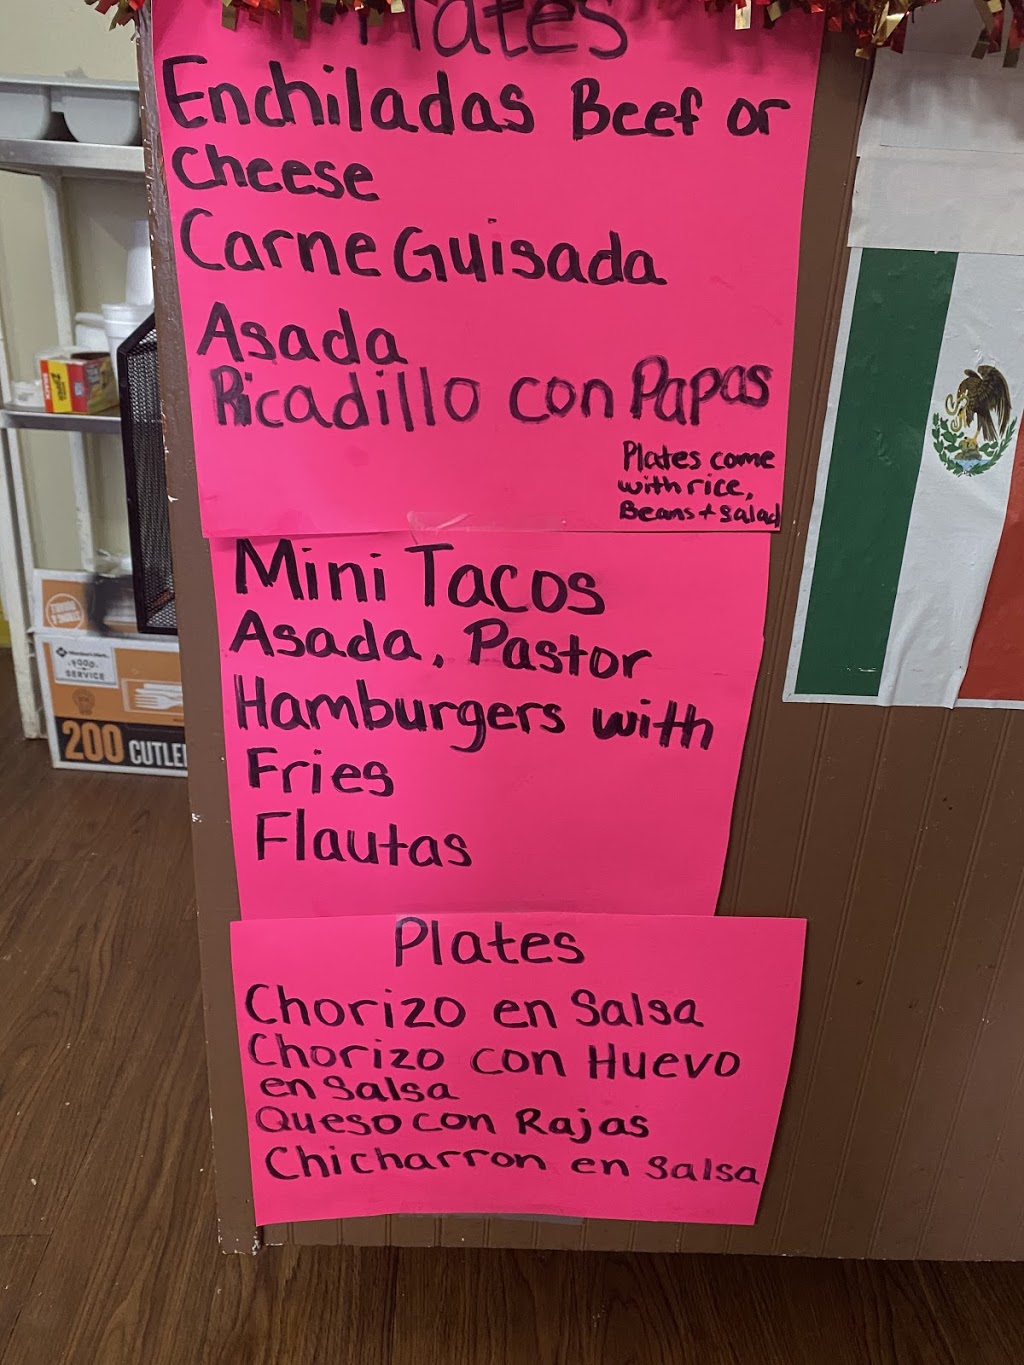 Plates
Enchiladas Beef or
cheese
Carne Guisada
Asada
Picadillo con Papas
Plates come
with rice,
Beans + Salad
Mini Tacos
Asada, Pastor
Hamburgers with
Fries
Flautas
Plates
Chorizo en Salsa
Chorizo con Huevo
en Salsa
Queso con Rajas
Chicharron en Salsa
FOOD
SERVICE
200 CUTLE